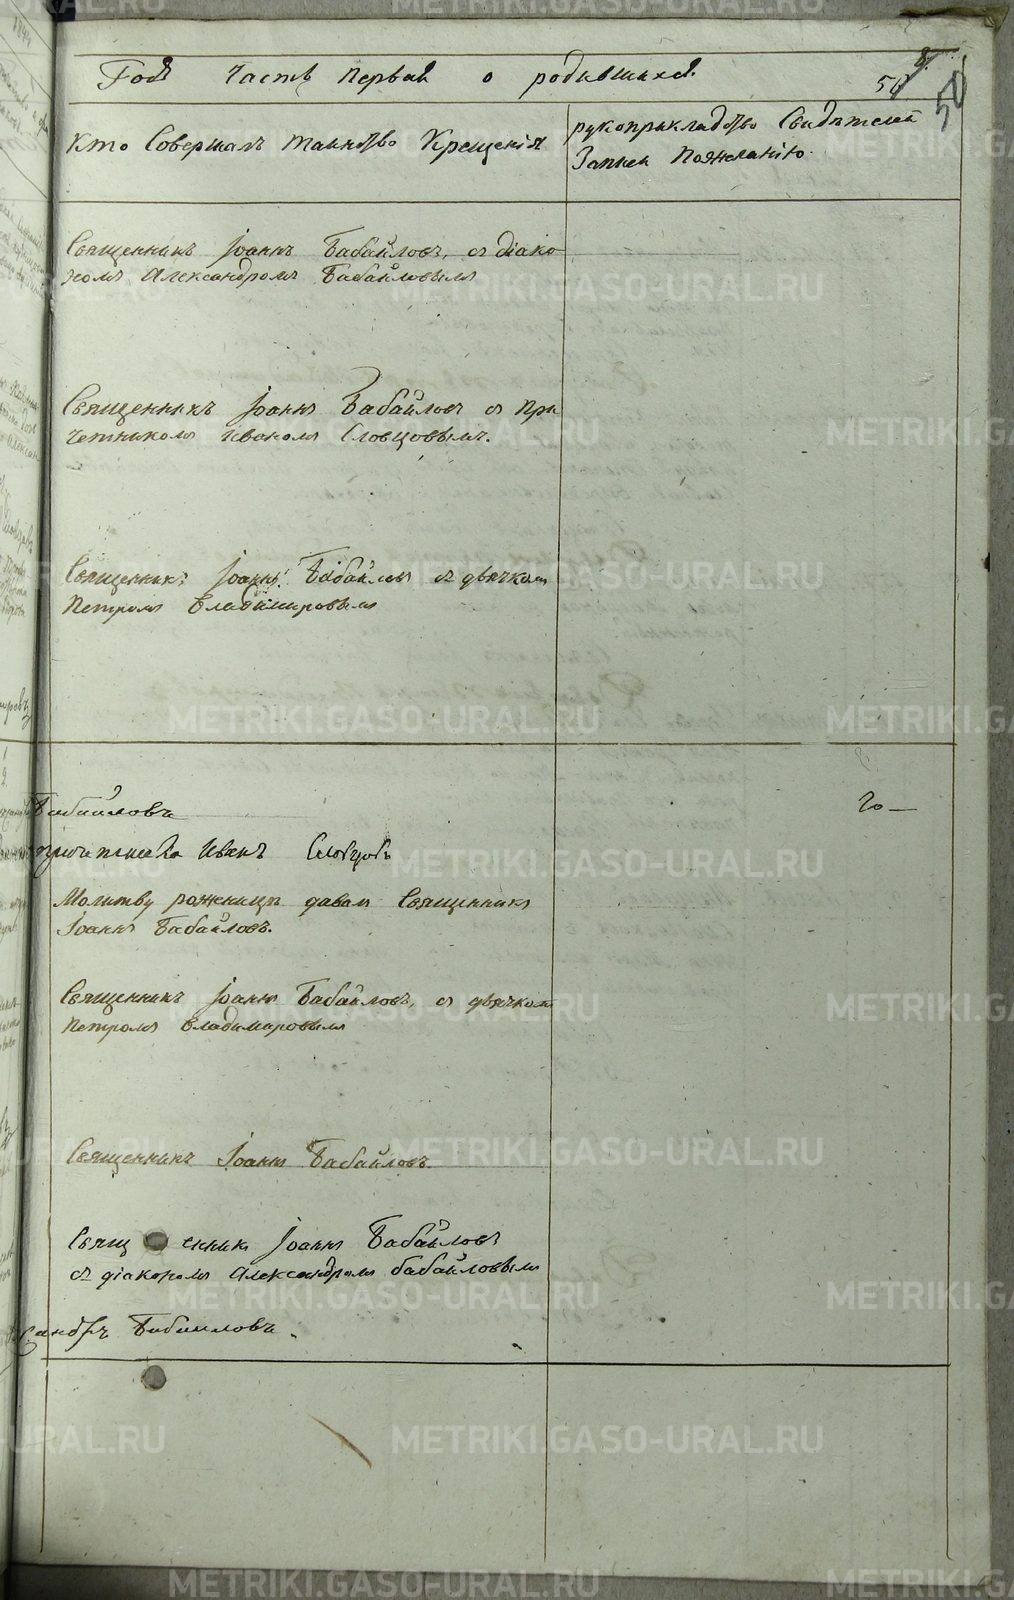 Годъ Часть первая о родившихся.
8.
54
50
Кто Совершалъ таинство Крещенія
рукоприкладство Свидѣтелей
Записи по желанію.
Священникъ Іоаннъ Бабайловъ, съ діако
номъ Александромъ Бабайловымъ
Священникъ Іоаннъ Бабайловъ съ при
четникомъ Иваномъ Словцовымъ.
Священникъ Іоаннъ Бабайловъ съ дьячкомъ
Петромъ Владимировымъ
Бабайловъ
Иванъ Словцовъ
Молитву роженицѣ давалъ Священникъ
Іоаннъ Бабайловъ.
Священникъ Іоаннъ Бабайловъ, съ дьячкомъ
Петромъ Владимировымъ
Священникъ Іоаннъ Бабайловъ
Священникъ Іоаннъ Бабайловъ
съ діакономъ Александромъ Бабайловымъ
сандръ Бабаиловъ.
METRIKI.GASO-URAL.RU